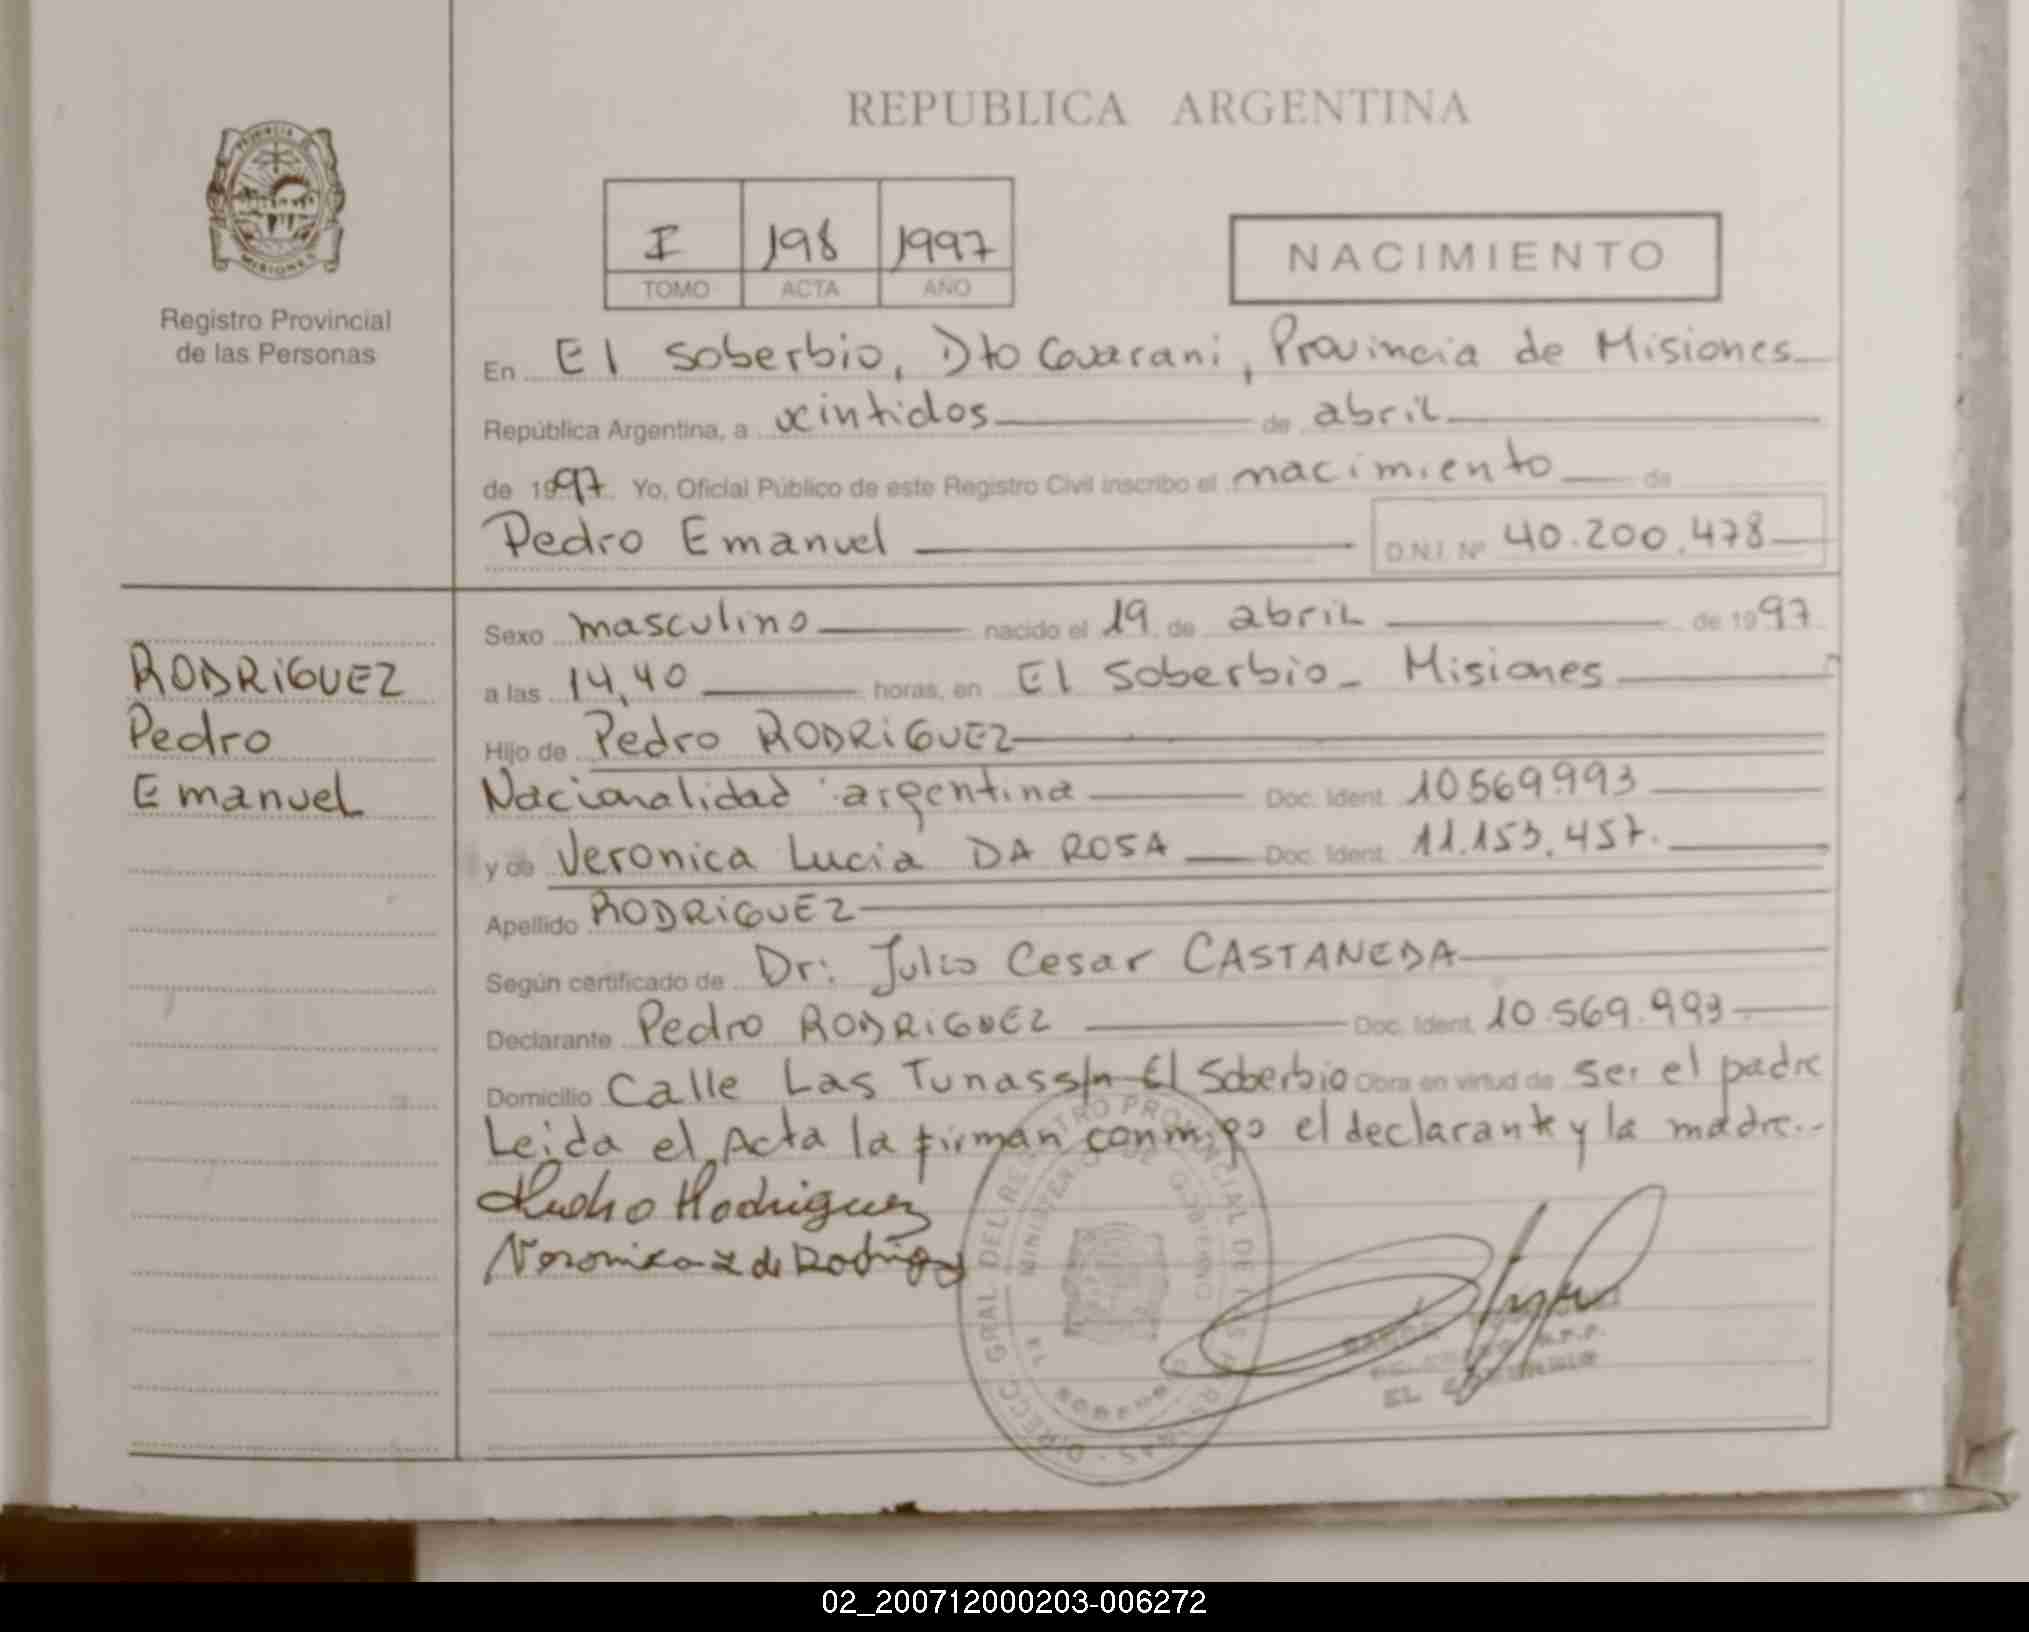 REPUBLICA ARGENTINA
PROVINCIA
MISIONES
Registro Provincial
de las Personas
I 198 1997
TOMO ACTA AÑO
NACIMIENTO
En El Soberbio, Dto Guarani, Provincia de Misiones
República Argentina, a veintidos de abril
de 1997 Yo, Oficial Público de este Registro Civil inscribo el nacimiento de
Pedro Emanuel D.N.I. Nº 40.200.478
Sexo masculino nacido el 19 de abril de 1997
a las 14,40 horas, en El Soberbio - Misiones
Hijo de Pedro RODRiGUEZ
Nacionalidad argentina Doc. Ident. 10569.993
y de Veronica Lucia DA ROSA Doc. Ident. 11.153.457.
Apellido RODRiGUEZ
Según certificado de Dr: Julio Cesar CASTANEDA
Declarante Pedro RODRiGUEZ Doc. Ident. 10.569.993
Domicilio Calle Las Tunas s/n El Soberbio Obra en virtud de ser el padre
Leida el Acta la firman conmigo el declarante y la madre.-
RODRiGUEZ
Pedro
Emanuel
Rodriguez
Veronica de Rodrigez
DIRECC. GRAL. DEL REGISTRO PROVINCIAL DE LAS PERSONAS
MINISTERIO DE GOBIERNO
EL SOBERBIO
EL SOBERBIO
02_200712000203-006272